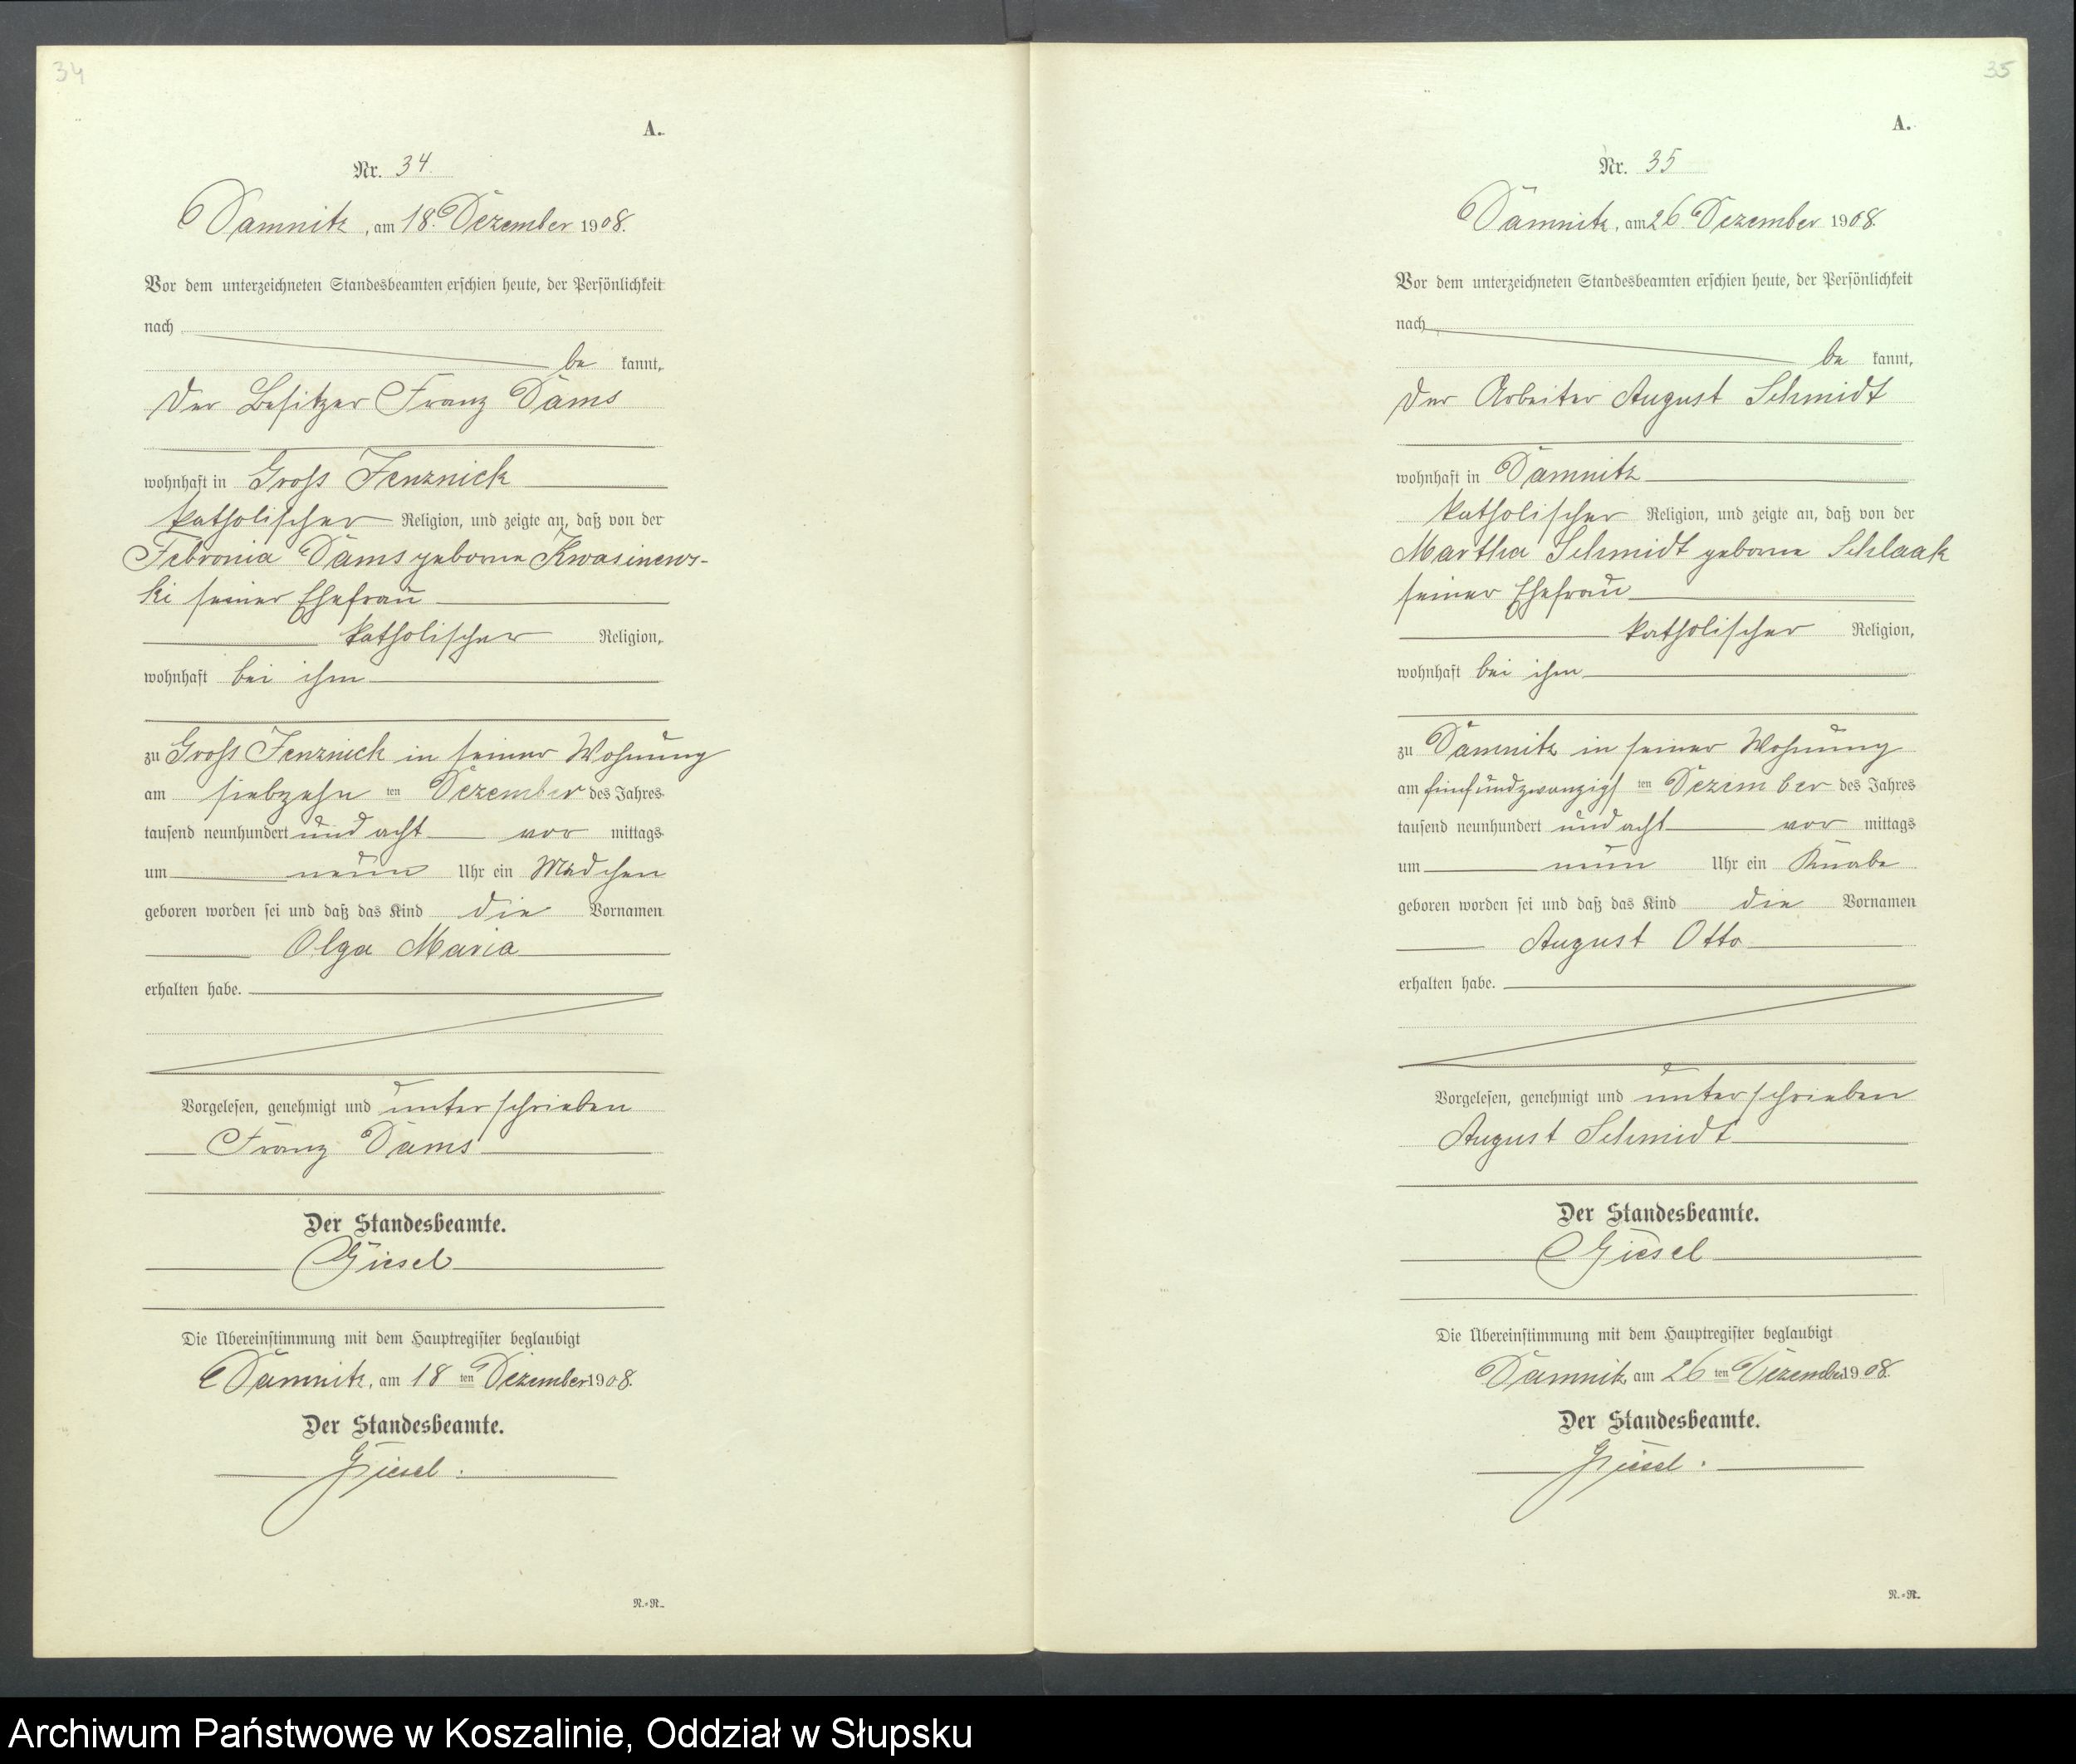 34
A.
Nr. 34.
Damnitz, am 18. Dezember 1908.
Vor dem unterzeichneten Standesbeamten erschien heute, der Persönlichkeit
nach
be kannt,
der Besitzer Franz Dams
wohnhaft in Gross Jenznick
katholischer Religion, und zeigte an, daß von der
Febronia Dams geborne Kwasinews-
ki seiner Ehefrau
katholischer Religion,
wohnhaft bei ihm
zu Gross Jenznick in seiner Wohnung
am siebzehn ten Dezember des Jahres
tausend neunhundert und acht vor mittags
um neun Uhr ein Mädchen
geboren worden sei und daß das Kind die Vornamen
Olga Maria
erhalten habe.
Vorgelesen, genehmigt und unterschrieben
Franz Dams
Der Standesbeamte.
Giesel
Die Übereinstimmung mit dem Hauptregister beglaubigt
Damnitz, am 18 ten Dezember 1908.
Der Standesbeamte.
Giesel.
N.=N.
35
A.
Nr. 35
Damnitz, am 26. Dezember 1908.
Vor dem unterzeichneten Standesbeamten erschien heute, der Persönlichkeit
nach
be kannt,
der Arbeiter August Schmidt
wohnhaft in Damnitz
katholischer Religion, und zeigte an, daß von der
Martha Schmidt geborne Schlaak
seiner Ehefrau
katholischer Religion,
wohnhaft bei ihm
zu Damnitz in seiner Wohnung
am fünfundzwanzigs ten Dezember des Jahres
tausend neunhundert und acht vor mittags
um neun Uhr ein Knabe
geboren worden sei und daß das Kind die Vornamen
August Otto
erhalten habe.
Vorgelesen, genehmigt und unterschrieben
August Schmidt
Der Standesbeamte.
Giesel
Die Übereinstimmung mit dem Hauptregister beglaubigt
Damnitz am 26 ten Dezember 1908.
Der Standesbeamte.
Giesel.
N.=N.
Archiwum Państwowe w Koszalinie, Oddział w Słupsku